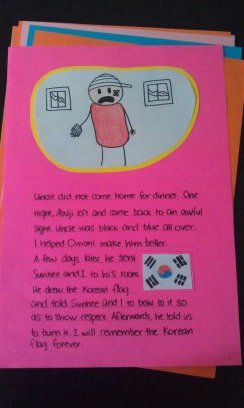 Uncle did not come home for dinner. One
night, Abuji left and came back to an awful
sight. Uncle was black and blue all over.
I helped Omoni make him better.
A few days later, he sent
Sunhee and I to his room.
He drew the Korean flag
and told Sunhee and I to bow to it so
as to show respect. Afterwards, he told us
to burn it. I will remember the Korean
flag forever.